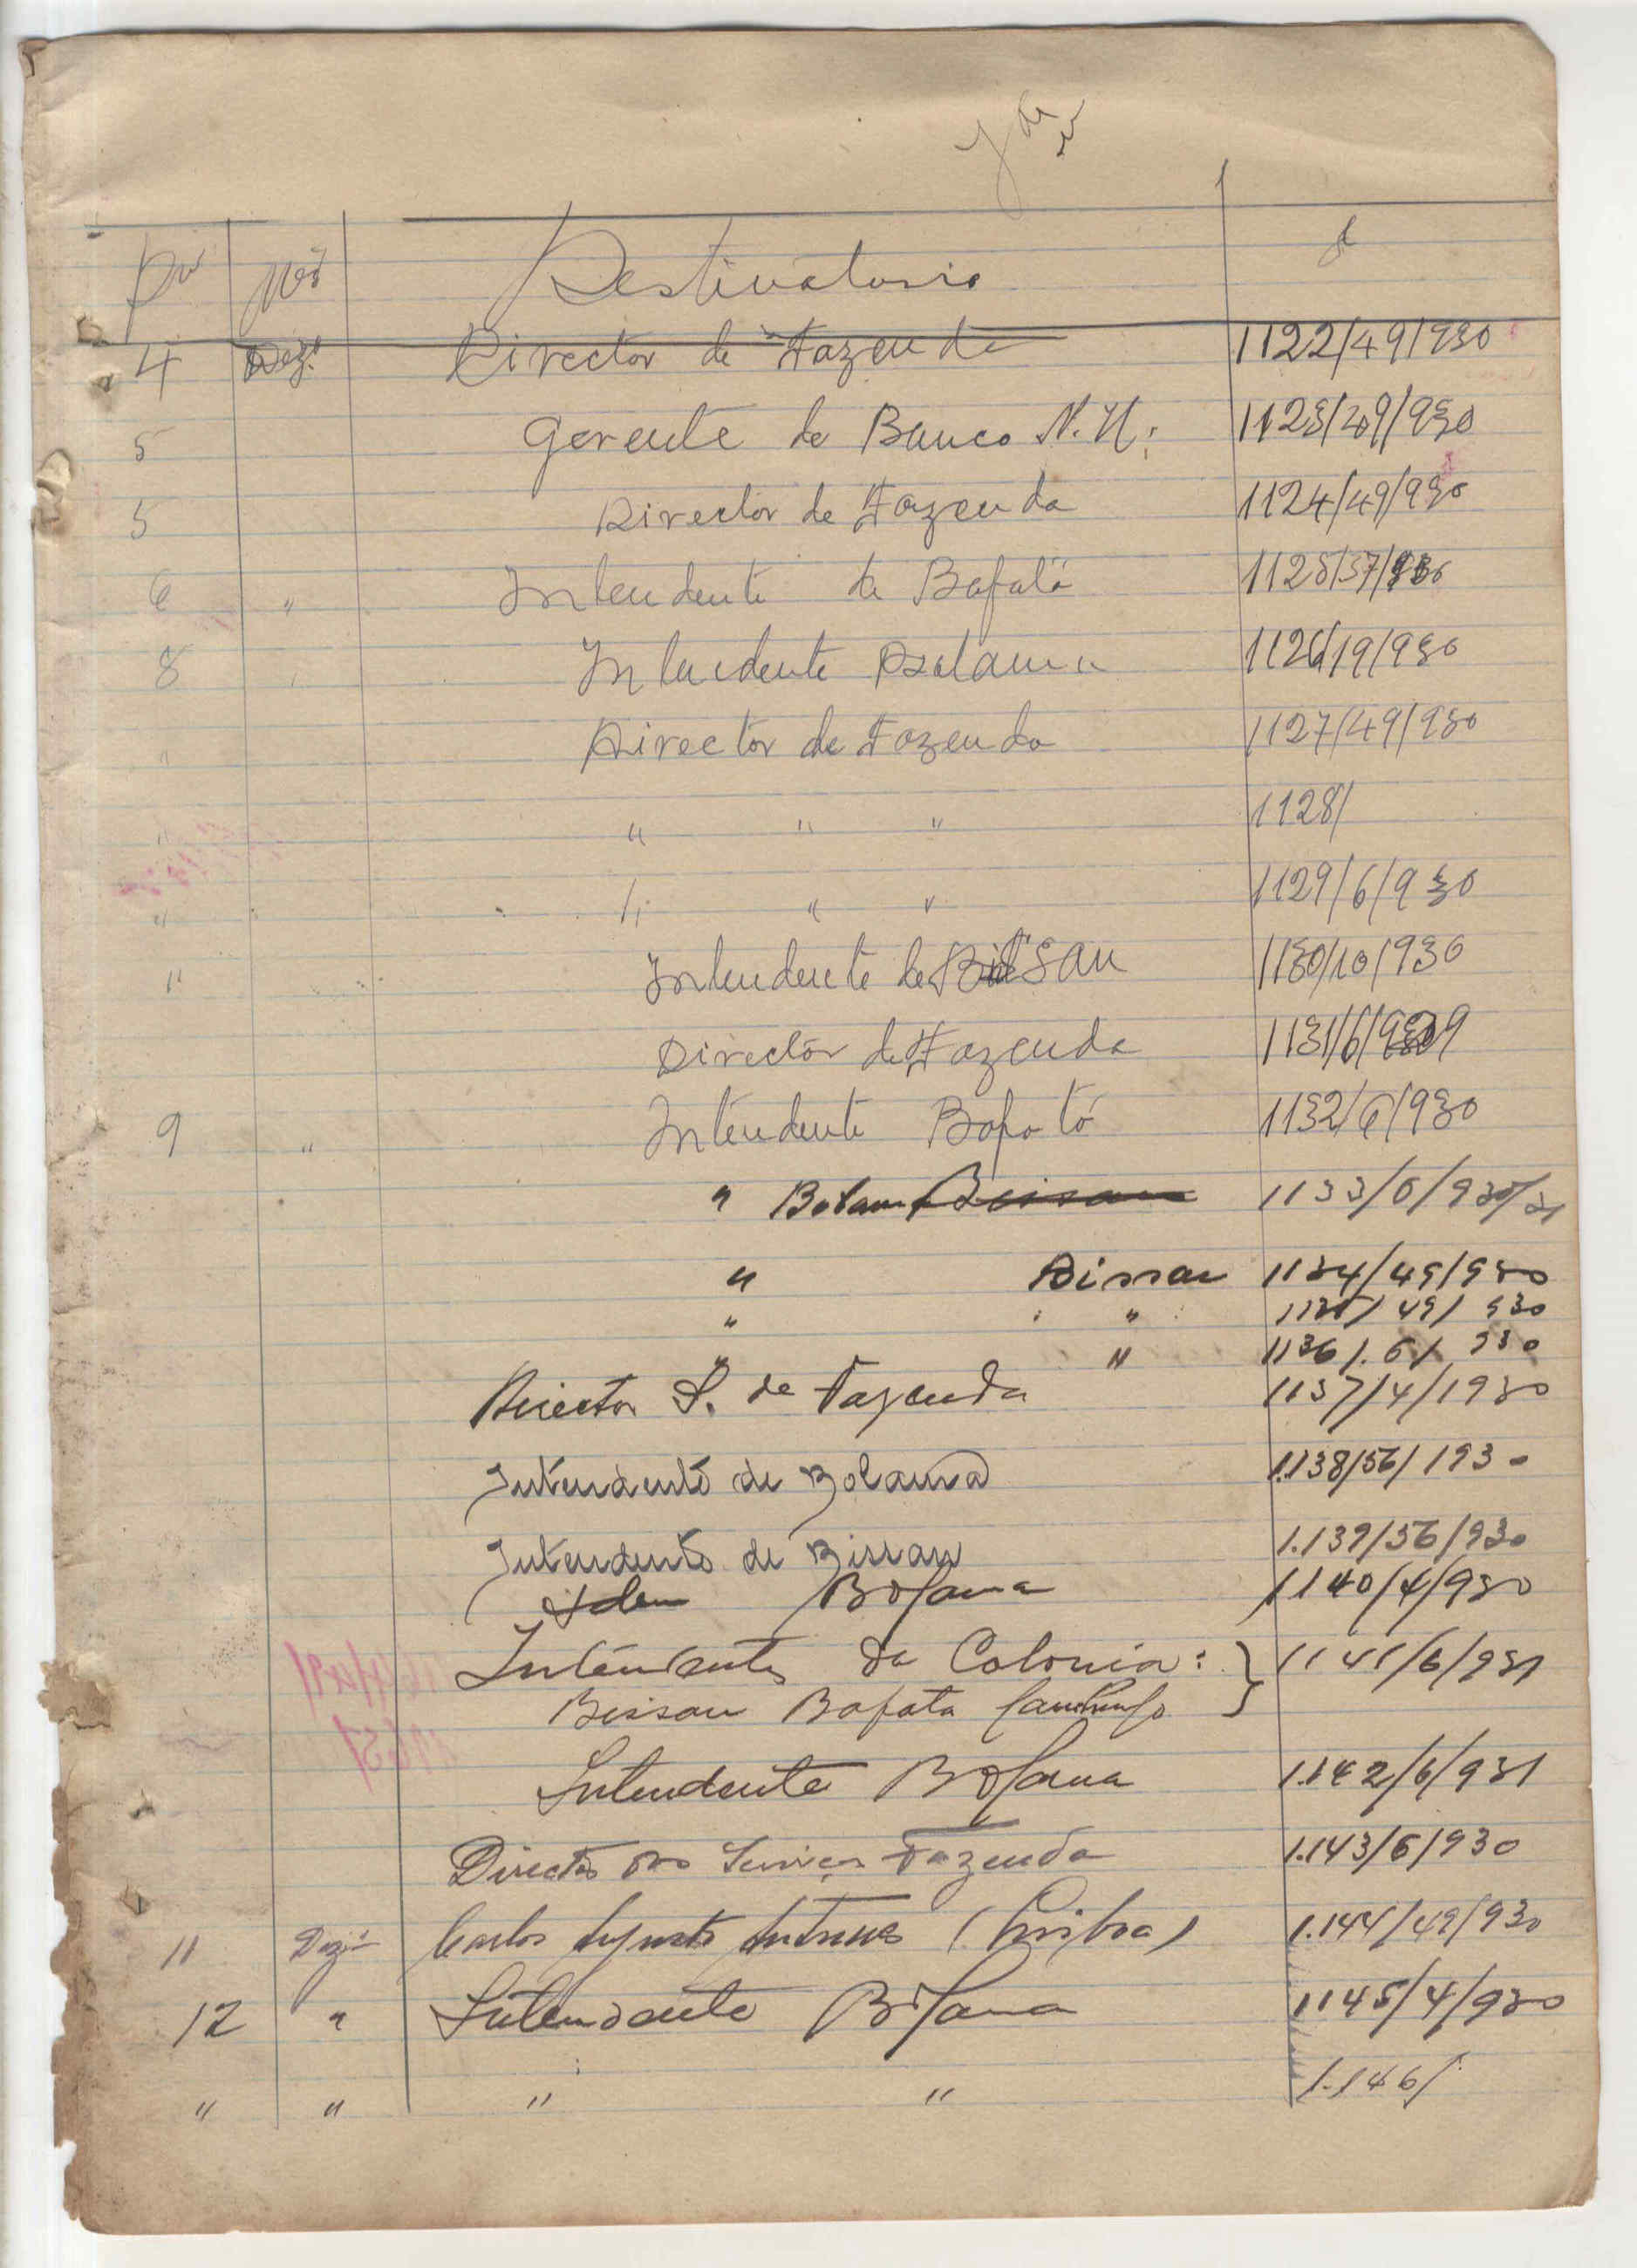 Dia Mês Destinatario
4 Dez. Director de Fazenda 1122/49/930
5 Gerente do Banco N. U. 1123/49/930
5 Director de Fazenda 1124/49/930
6 " Intendente de Bafatá 1125/37/930
8 " Intendente Bolama 1126/19/930
" Director de Fazenda 1127/49/930
" " " " 1128/
" " " " 1129/6/930
" Intendente de Bissau 1130/10/930
Director de Fazenda 1131/6/929
9 " Intendente Bafatá 1132/6/930
" Bolama Bissau 1133/6/930/31
" Bissau 1134/49/930
" " 1135/49/930
" " 1136/6/930
Director S. de Fazenda 1137/4/1930
Intendente de Bolama 1.138/56/1930
Intendente de Bissau 1.139/56/930
Idem Bolama 1140/4/930
Intendentes da Colonia: } 1141/6/931
Bissau Bafata Canchungo
Intendente Bolama 1.142/6/931
Director dos Serviços Fazenda 1.143/6/930
11 Dezº Carlos Augusto Antunes (Lisboa) 1.144/49/930
12 " Intendente Bolama 1145/4/930
" " " " 1.146/